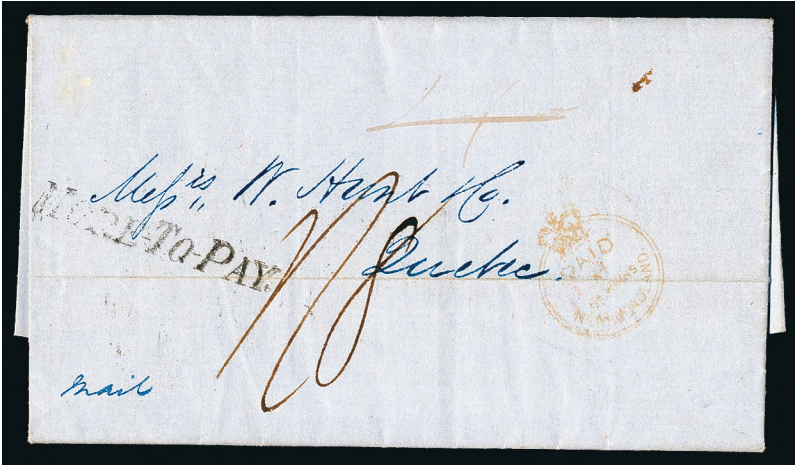 Messrs W. Hunt & Co.
MORE-TO-PAY
Quebec.
PAID
ST. JOHNS NEWFOUNDLAND
1/8
Mail